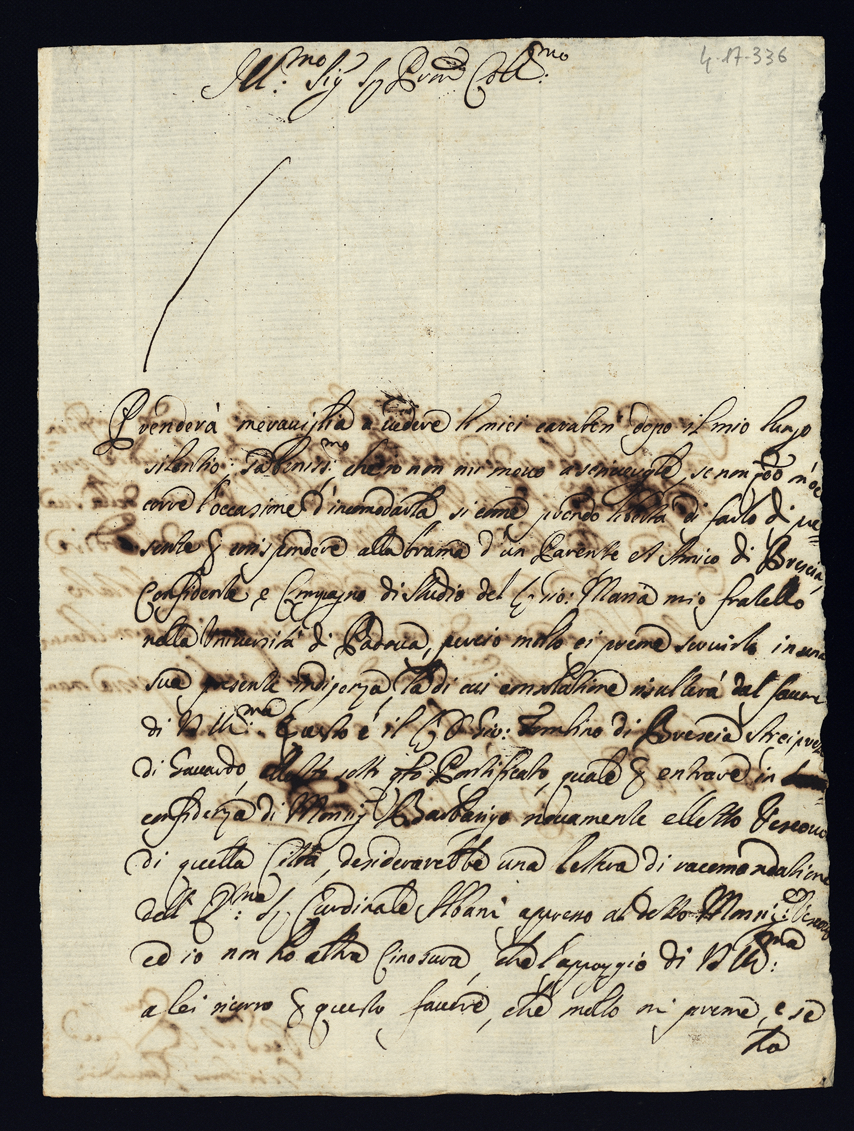 4-17-336
Ill.mo Sig.r Sig.r Pron Coll.mo
Prenderà meraviglia a vedere li miei caratteri dopo il mio lungo
silentio; che io non mi movo a scriverle, se non qdo m'oc
corre l'occasione d'incomodarla, si come prendo libertà di farlo di pre=
sente p corrispondere alla brama d'un Parente et Amico di Brescia,
Confidente e Compagno di studio del Sig.r Gio: Maria mio fratello
nella Università di Padova, perciò molto ci preme servirlo in una
sua presente indigenza, la di cui consolatione risulterà dal favore
di V.S. Ill.ma Questo è il Sig.r D. Gio: di Brescia
di Gavardo, eletto sotto qto Pontificato, quale p entrare in
confidenza di Monsig.r Barbarigo novamente elletto Vescovo
di quella Città, desiderarebbe una lettera di racomandatione
dell' Em.mo Sig.r Cardinale Albani appresso al detto Monsig.r Vescovo
ed io non ho altra Cinosura, che l'appoggio di V.S. Ill.ma
a lei ricorro p questo favore, che molto mi preme, e se